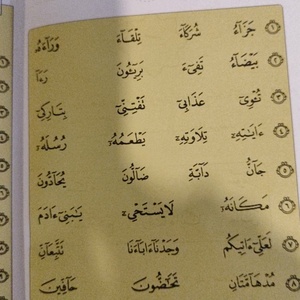 ١ جَزَآءُ شُرَكَآءَ تِلْقَآءَ وَرَآءَهُ
٢ بَيْضَآءُ تَفِىٓءَ بَرِيٓـُٔونَ رَءَا
٣ تُـْٔوِىٓ عَذَابِىٓ تَفْتِنِّىٓ بِتَارِكِىٓ
٤ ءَايَٰتِهِۦ تِلَاوَتِهِۦ يَطْعَمُهُۥٓ رُسُلَهُۥٓ
٥ جَآنٌّ دَآبَّةٍ ضَآلُّونَ يُحَآدُّونَ
٦ مَكَانَهُۥ لَا يَسْتَحْىِۦٓ يَٰبَنِىٓ ءَادَمَ
٧ لَعَلِّىٓ ءَاتِيكُم وَجَدْنَآ ءَابَآءَنَا تَتَّبِعَآنِّ
٨ مُدْهَآمَّتَانِ تَحَٰٓضُّونَ حَآفِّينَ